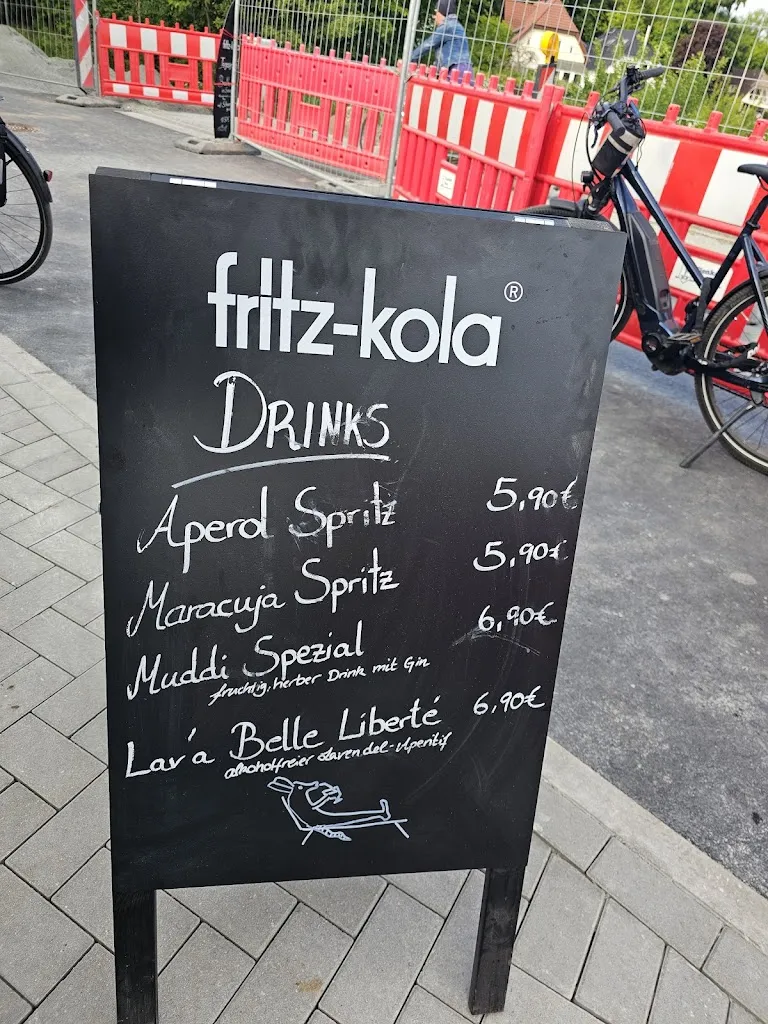 fritz-kola®
DRINKS
Aperol Spritz 5,90€
Maracuja Spritz 5,90€
Muddi Spezial 6,90€
fruchtig, herber Drink mit Gin
Lav'a Belle Liberté 6,90€
alkoholfreier Lavendel-Aperitif